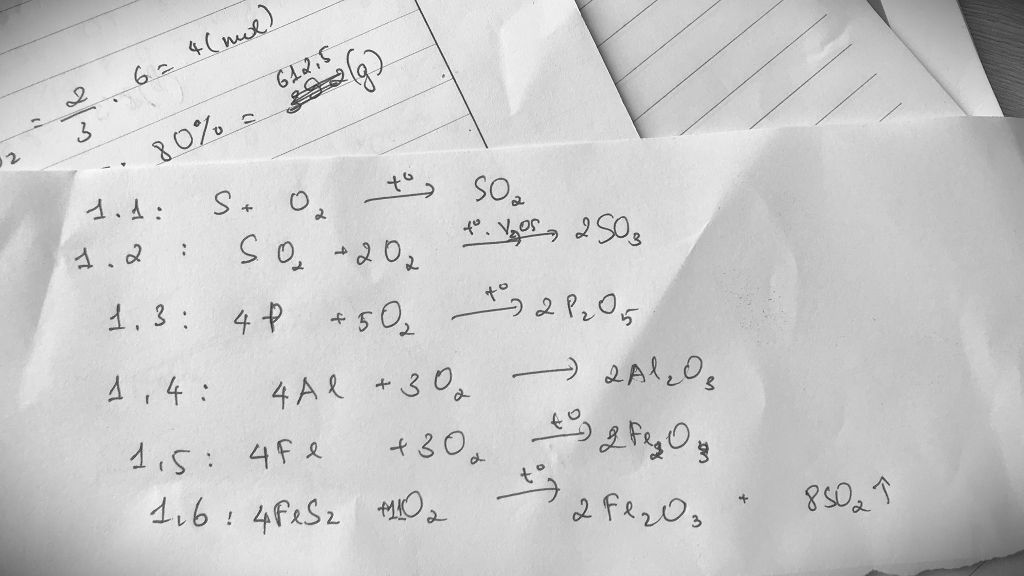 = 2/3 . 6 = 4 (mol)
. 80% = 612,5 (g)
1.1: S + O₂ t° → SO₂
1.2 : SO₂ + 2O₂ t°. V₂O5 → 2SO₃
1.3: 4P + 5O₂ t° → 2P₂O₅
1,4: 4Al + 3O₂ → 2Al₂O₃
1,5: 4Fe + 3O₂ t° → 2Fe₂O₃
1,6: 4FeS₂ + 11O₂ t° → 2Fe₂O₃ + 8SO₂ ↑